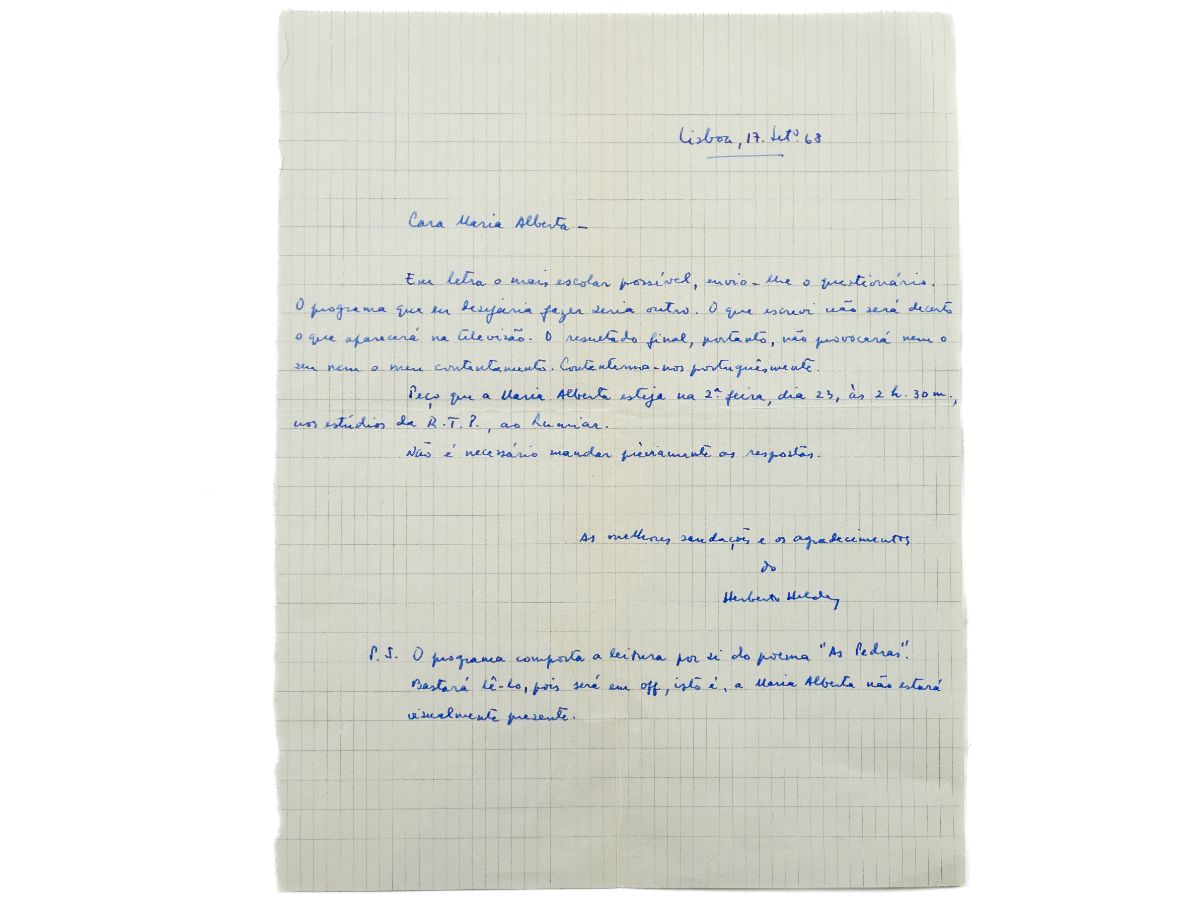 Lisboa, 17. Setº. 68
Cara Maria Alberta —
Em letra o mais escolar possível, envio-lhe o questionário.
O programa que eu desejaria fazer seria outro. O que escrevi não será decerto
o que aparecerá na televisão. O resultado final, portanto, não provocará nem o
seu nem o meu contentamento. Contentemo-nos portuguêsmente.
Peço que a Maria Alberta esteja na 2ª feira, dia 23, às 2 h. 30 m.,
nos estúdios da R.T.P., ao Lumiar.
Não é necessário mandar prèviamente as respostas.
As melhores saudações e os agradecimentos
do
Herberto Helder
P.S. O programa comporta a leitura por si do poema "As Pedras".
Bastará lê-lo, pois será em off, isto é, a Maria Alberta não estará
visualmente presente.